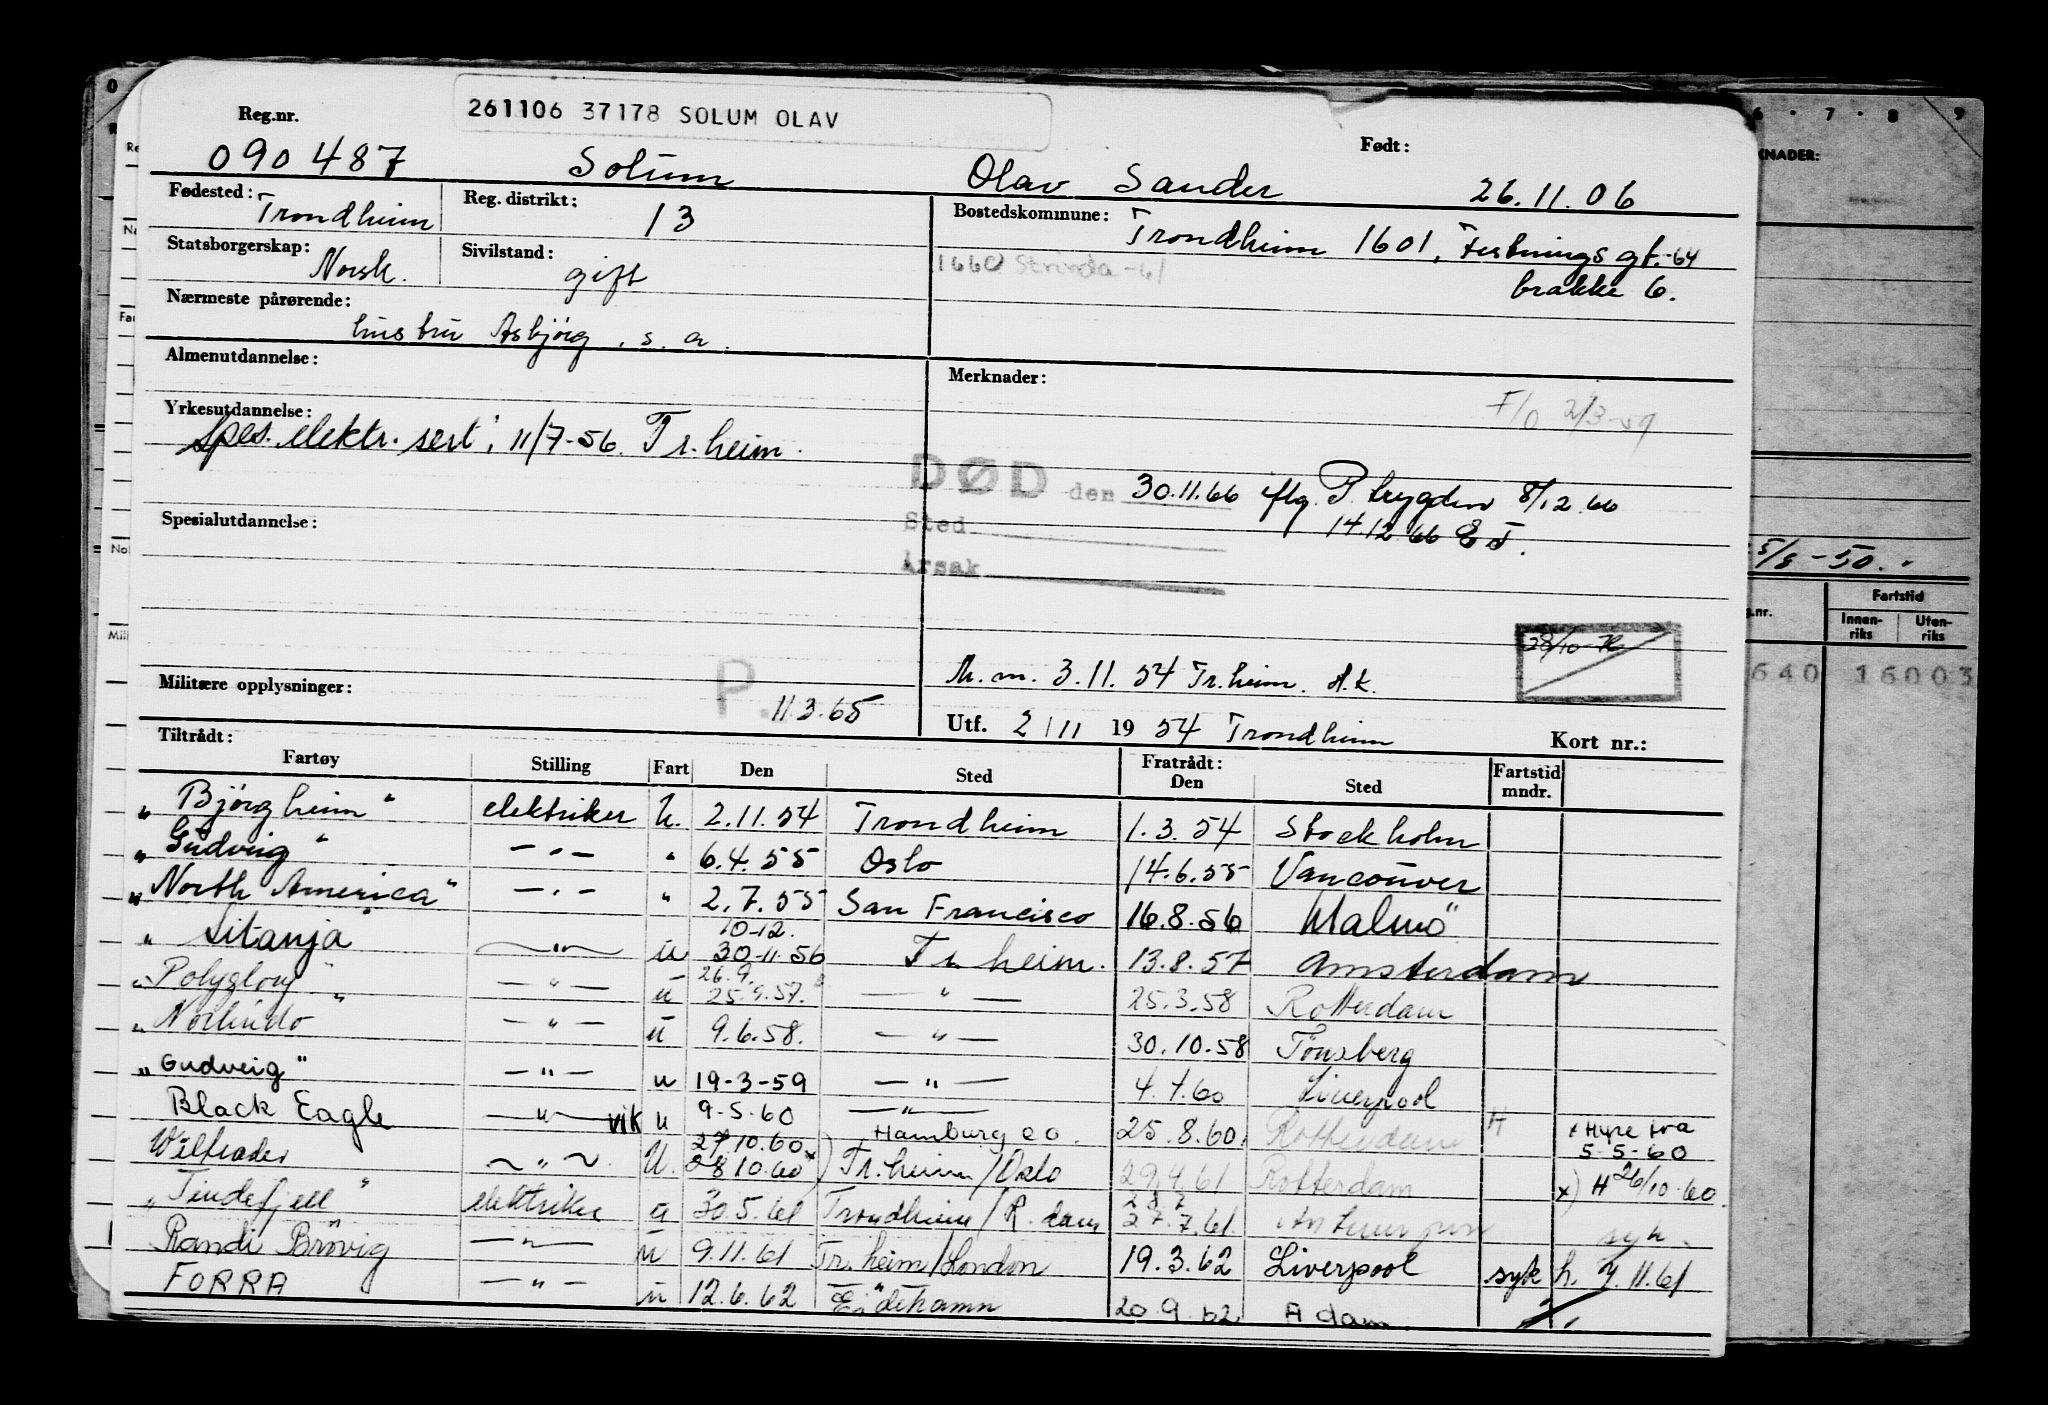 261106 37178 SOLUM OLAV
Reg.nr. Født:
090487 Solum Olav Sander 26.11.06
Fødested: Trondheim Reg. distrikt: 13 Bostedskommune: Trondheim 1601, Festningsgt.-64
1660 Strinda -61 brakke 6.
Statsborgerskap: Norsk. Sivilstand: gift
Nærmeste pårørende: hustru Asbjørg, s. a.
Almenutdannelse: Merknader:
F/O 2/3-59
Yrkesutdannelse: Spes. elektr. sert; 11/7-56. Tr.heim.
DØD den 30.11.66 iflg. P. trygden 8/12.66
Sted 14.12.66 E J.
Årsak
Spesialutdannelse:
5/8-50.
Fartstid
Innen-riks Uten-riks
640 16003
28/10
M. m. 3.11.54 Tr.heim. A.k.
Militære opplysninger: P. 11.3.65
Utf. 2/11 1954 Trondheim Kort nr.:
Tiltrådt: Fratrådt:
Fartøy Stilling Fart Den Sted Den Sted Fartstid mndr.
"Bjørgheim" elektriker U. 2.11.54 Trondheim 1.3.54 Stockholm
"Gudveig" -"- " 6.4.55 Oslo 14.6.55 Vancouver
"North America" -"- " 2.7.55 San Francisco 16.8.56 Malmö
10-12.
"Litanja" -"- u 30-11-56 Tr.heim. 13.8.57 Amsterdam
26.9.
"Polyglory" -"- u 25.9.57. -"- 25.3.58 Rotterdam
"Norhindo" -"- u 9.6.58. -"- 30.10.58 Tönsberg
"Gudveig" -"- u 19-3-59 -"- 4.1.60 Liverpool
Black Eagle -"- vik u 9-5-60 -"- Hamburg eo. 25.8.60. Rotterdam H x Hyre fra 5-5-60
27.10.60
Wiltrader -"- U. 28.10.60 x) Tr.heim/Oslo 29.4.61 Rotterdam x) H 26/10-60.
28.7
"Tindefjell" elektriker u 30.5.61 Trondheim/R.dam 27.7.61. Antwerpen syk.
Randi Brøvig -"- u 9.11.61 Tr.heim/London 19.3.62 Liverpool syk h. 7.11.61
FORRA -"- u 12.6.62 Eidehamn 20.9.62 A dam.